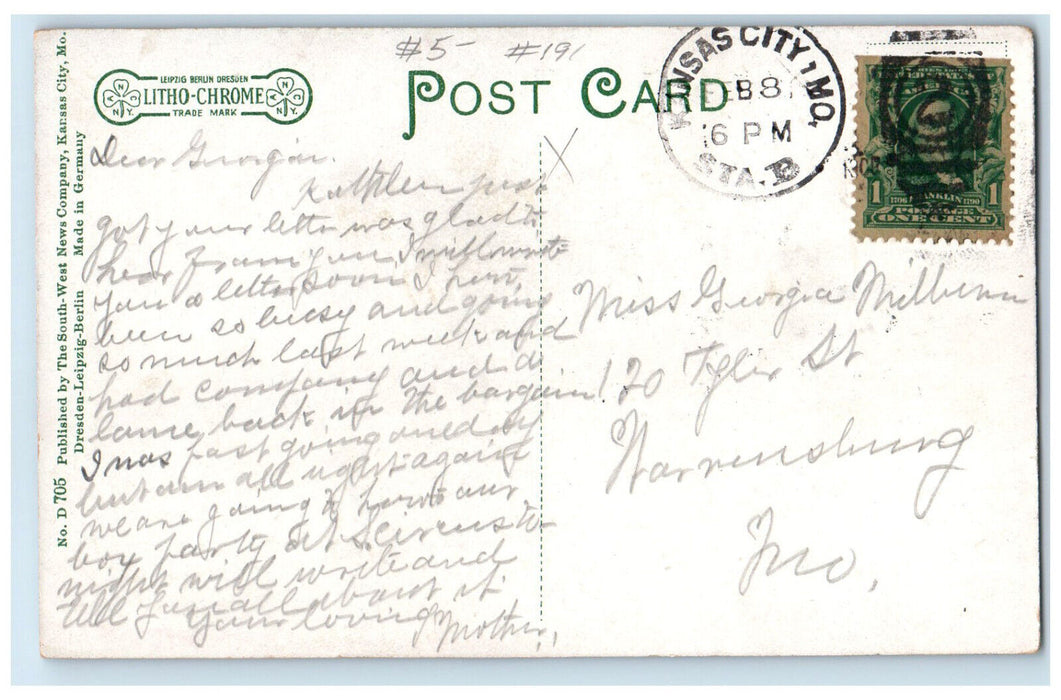 #5- #191
LEIPZIG BERLIN DRESDEN
LITHO-CHROME
TRADE MARK
N.Y. N.Y.
POST CARD
KANSAS CITY, MO.
FEB 8
6 PM
STA. B
1706 FRANKLIN 1790
POSTAGE
1 ONE CENT
No. D 705 Published by The South-West News Company, Kansas City, Mo.
Dresden-Leipzig-Berlin Made in Germany
Dear Georgia.
Kathleen just
got your letter was glad to
hear from you I will write
you a letter soon I have
been so busy and going
so much last week and
had company and a
lame back in the bargain
I was just going one day
but am all right again
we are going to have our
box party at circus to
night will write and
tell you all about it
Your loving
Mother.
Miss Georgia Milburn
120 Tyler St
Warrensburg
Mo,